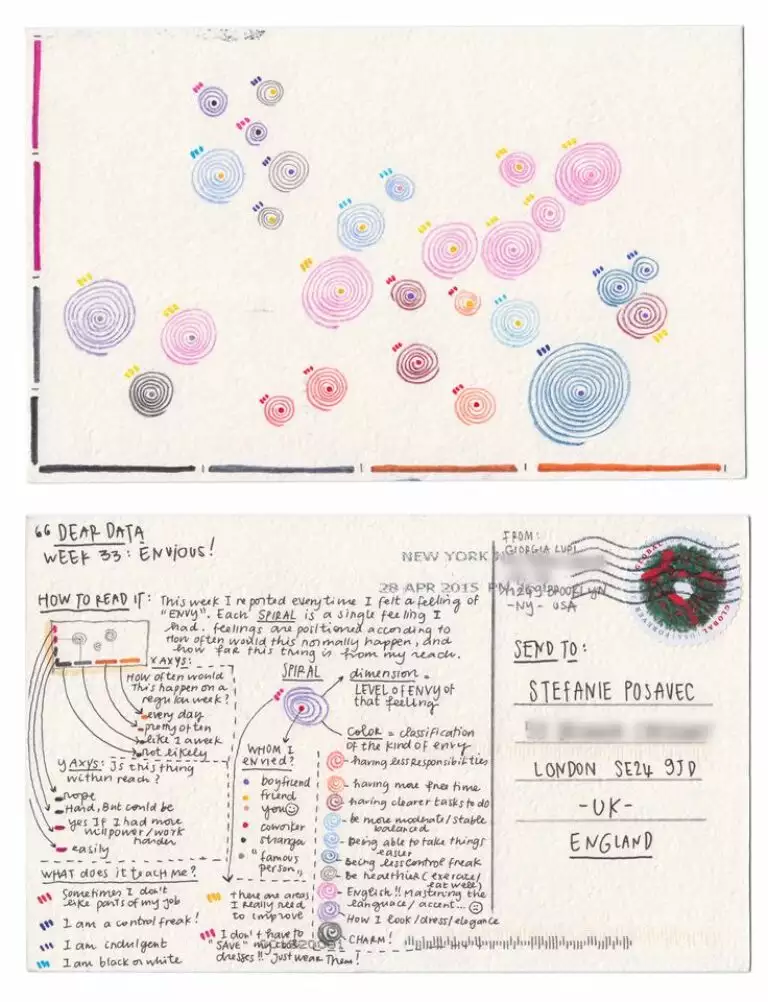 “ DEAR DATA
WEEK 33: ENVIOUS!
HOW TO READ IT:
This week I reported everytime I felt a feeling of
"ENVY". Each SPIRAL is a single feeling I
had. feelings are positioned according to
how often would this normally happen, and
how far this thing is from my reach.
X AXYS:
How often would
This happen on a
regular week?
every day
pretty often
like 1 a week
not likely
Y AXYS: Is this thing
within reach?
nope
Hard, But could be
yes If I had more
willpower/work
harder
easily
SPIRAL
dimension =
LEVEL OF ENVY of
that feeling
WHOM I
ENVIED?
boyfriend
friend
you
coworker
stranger
"famous
person"
Color = classification
of the kind of envy
having less responsibilities
having more free time
having clearer tasks to do
be more moderate/stable
balanced
Being able to take things
easier
Being less control freak
Be healthier (exercise/
eat well)
English!! Mastering the
language/accent...
How I look/dress/elegance
CHARM!
WHAT does it teach me?
Sometimes I don't
like parts of my job
I am a control freak!
I am indulgent
I am black or white
there are areas
I really need
to improve
I don't have to
"SAVE" my
dresses!! Just wear Them!
NEW YORK
28 APR 2015 PM
FROM:
GIORGIA LUPI
BROOKLYN
-NY- USA
GLOBAL
GLOBAL
SEND TO:
STEFANIE POSAVEC
LONDON SE24 9JD
-UK-
ENGLAND